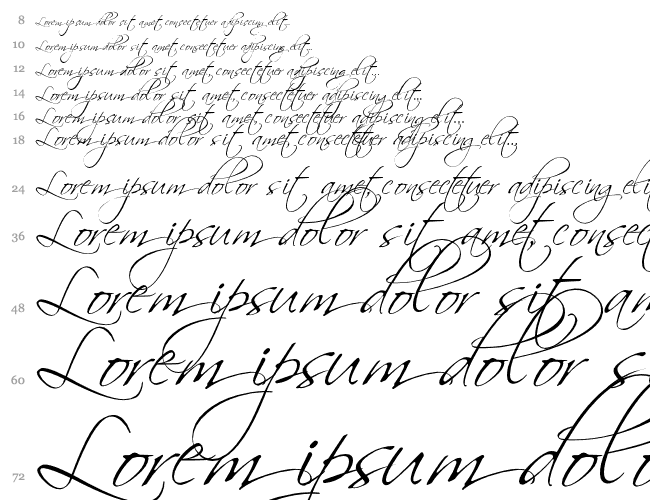 8 Lorem ipsum dolor sit amet consectetuer adipiscing elit...
10 Lorem ipsum dolor sit amet, consectetuer adipiscing elit...
12 Lorem ipsum dolor sit amet, consectetuer adipiscing elit...
14 Lorem ipsum dolor sit amet, consectetuer adipiscing elit...
16 Lorem ipsum dolor sit amet, consectetuer adipiscing elit...
18 Lorem ipsum dolor sit amet, consectetuer adipiscing elit...
24 Lorem ipsum dolor sit amet, consectetuer adipiscing eli
36 Lorem ipsum dolor sit amet, consect
48 Lorem ipsum dolor sit am
60 Lorem ipsum dolor s
72 Lorem ipsum dolo